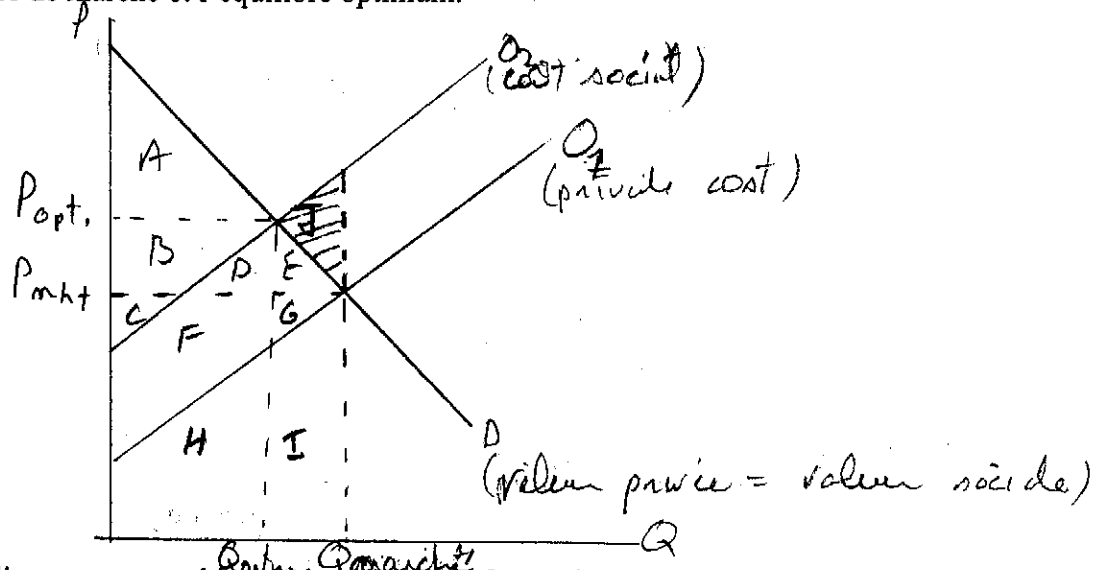 l'équilibre optimum.
P
O2
(cost social)
A
O1
(private cost)
Popt.
B
J
D
E
Pmkt
C
G
F
H
I
D
(valeur privée = valeur sociale)
Q
Qopt. Qmarché